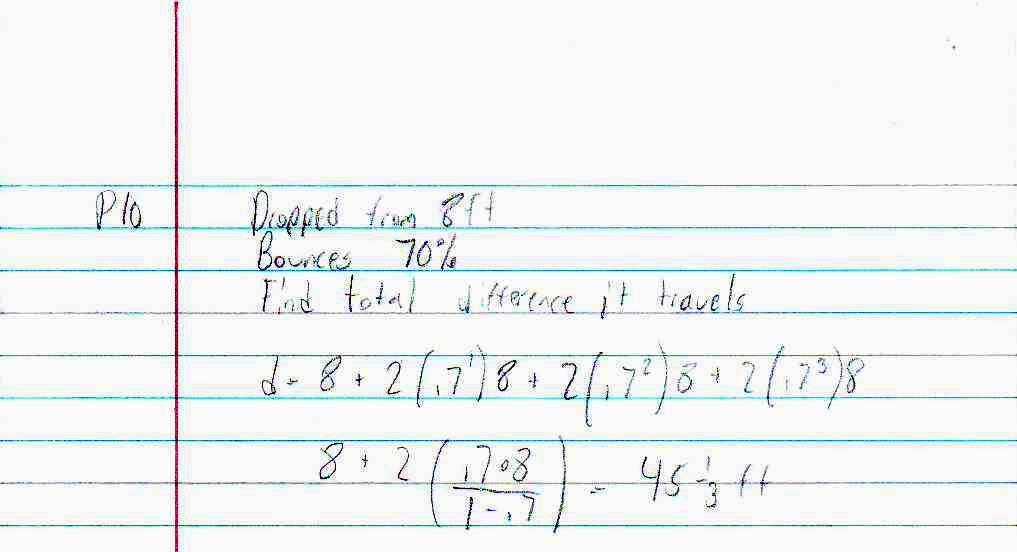 P10 Dropped from 8ft
Bounces 70%
Find total difference it travels
d = 8 + 2(.7¹)8 + 2(.7²)8 + 2(.7³)8
8 + 2(.7•8/1-.7) = 45 1/3 ft